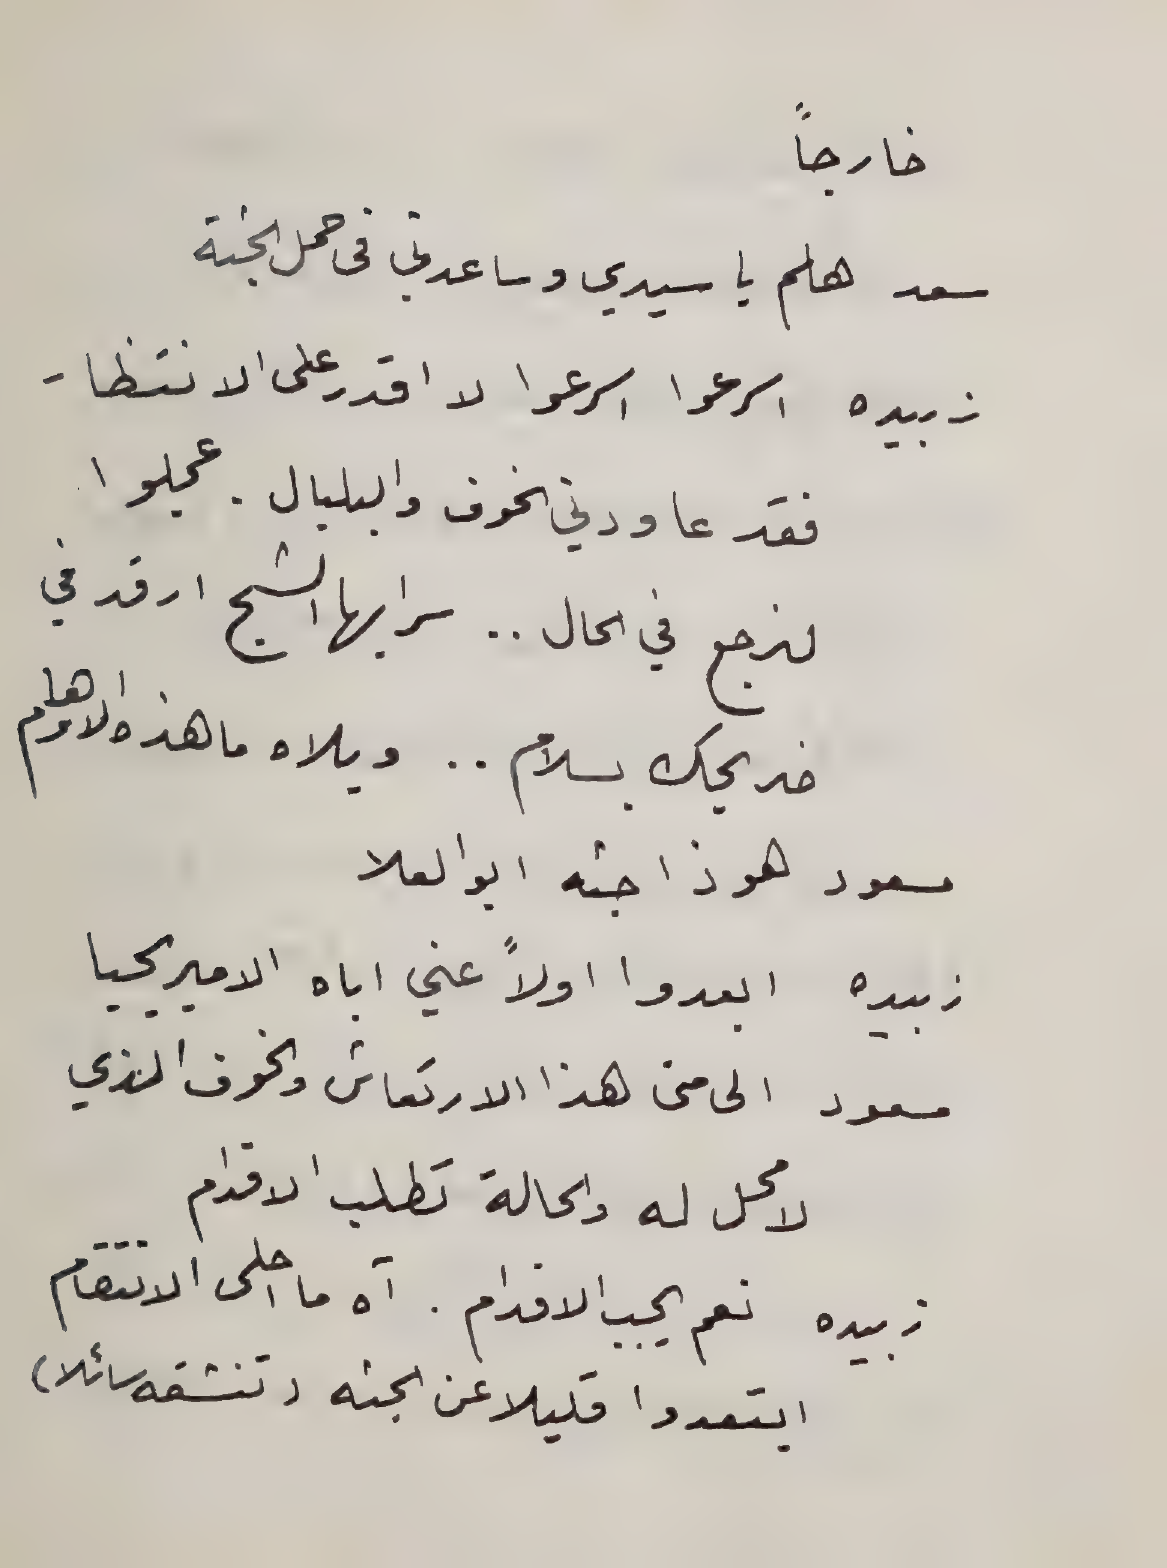 خارجاً
سعد هلم يا سيدي وساعدني في حمل الجثة
زبيده اسرعوا اسرعوا لا اقدر على الانتظار
فقد عاودني الخوف والبلبال . عجلوا
لنرجع في الحال .. سر ايها الشبح ارقد في
ضريحك بسلام .. ويلاه ما هذه الاوهام
مسعود هوذا جثه ابو العلا
زبيده ابعدوا اولاً عني اباه الامير يحيا
مسعود الى متى هذا الارتعاش والخوف الذي
لا محل له والحالة تطلب الاقدام
زبيده نعم يجب الاقدام . آه ما احلى الانتقام
ابتعدوا قليلا عن الجثه (تنشقه سائلا)